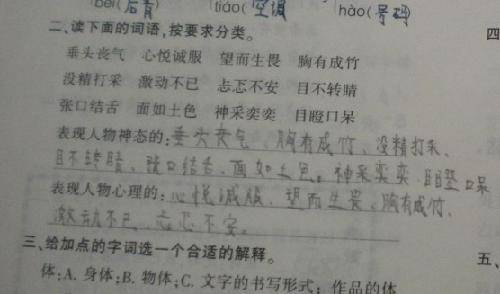 bēi(后背 tiáo(空调 hào(号码)
二、读下面的词语,按要求分类。
垂头丧气 心悦诚服 望而生畏 胸有成竹
没精打采 激动不已 忐忑不安 目不转睛
张口结舌 面如土色 神采奕奕 目瞪口呆
表现人物神态的:垂头丧气、胸有成竹、没精打采、
目不转睛、张口结舌、面如土色。神采奕奕 目瞪口呆
表现人物心理的:心悦诚服、望而生畏、胸有成竹、
激动不已、忐忑不安。
三、给加点的字词选一个合适的解释。
体:A.身体;B.物体;C.文字的书写形式;作品的体
四
五、